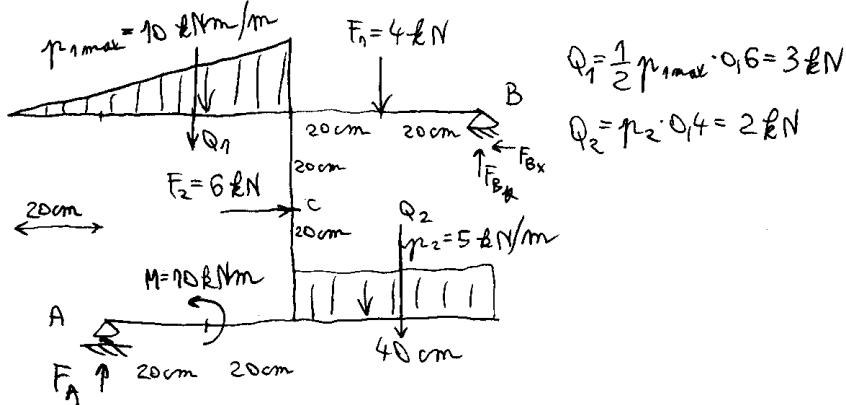 p1max = 10 kNm/m
F1 = 4 kN
Q1 = 1/2 p1max · 0,6 = 3 kN
Q2 = p2 · 0,4 = 2 kN
B
Q1
20cm 20cm
FBx
FBy
20cm
F2 = 6 kN
C
20cm
20cm
Q2
p2 = 5 kN/m
M = 10 kNm
A
40 cm
FA
20cm 20cm